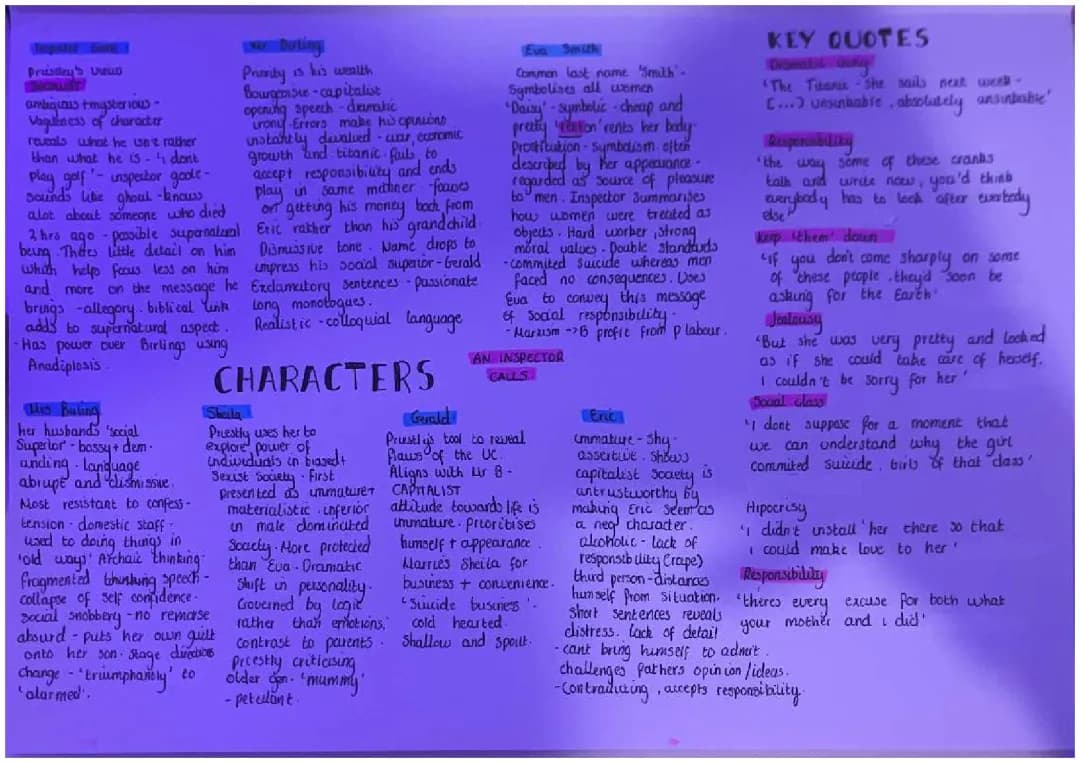 Inspector Goole
Priestley's views
Socialist
ambigious + mysterious -
Vagueness of character
reveals what he isn't rather
than what he is - 'i dont
play golf' - inspector goole -
sounds like ghoul - knows
alot about someone who died
2 hrs ago - possible supernatural
being. Theres little detail on him
which helps focus less on him
and more on the message he
brings - allegory. biblical link
adds to supernatural aspect.
- Has power over Birlings using
Anadiplosis.
Mr Birling
Priority is his wealth
Bourgeoisie - capitalist
opening speech - dramatic
irony. Errors make his opinions
instantly devalued - war, economic
growth and titanic. fails to
accept responsibility and ends
play in same manner - focuses
on getting his money back from
Eric rather than his grandchild.
Dismissive tone. Name drops to
impress his social superior - Gerald
Exclamatory sentences - passionate
long monologues.
Realistic - colloquial language
Eva Smith
Common last name 'Smith' -
Symbolises all women
'Daisy' - symbolic - cheap and
pretty 'renton' rents her body -
Prostitution - Symbolism. often
described by her appearance -
regarded as source of pleasure
to men. Inspector Summarises
how women were treated as
objects. Hard worker, strong
moral values. Double standards
- commited suicide whereas men
faced no consequences. Uses
Eva to convey this message
of Social responsibility.
- Marxism -> B profit from P labour.
KEY QUOTES
Dramatic irony
'The Titanic - she sails next week -
[...] unsinkable, absolutely unsinkable'
Responsibility
'the way some of these cranks
talk and write now, you'd think
everybody has to look after everybody
else'
Keep 'them' down
'if you don't come sharply on some
of these people, they'd soon be
asking for the Earth'
Jealousy
'But she was very pretty and looked
as if she could take care of herself.
I couldn't be sorry for her'
Social class
'I dont suppose for a moment that
we can understand why the girl
commited suicide. Girls of that class'
Hipocrisy
'I didn't install her there so that
I could make love to her'
Responsibility
'theres every excuse for both what
your mother and i did'
AN INSPECTOR
CALLS
CHARACTERS
Mrs Birling
her husbands 'social
Superior' - bossy + dem -
anding. language
abrupt and dismissive.
Most resistant to confess -
tension - domestic staff -
used to doing things in
'old ways' Archaic thinking.
fragmented thinking speech -
collapse of self confidence.
social snobbery - no remorse
absurd - puts her own guilt
onto her son. stage directions
change - 'triumphantly' to
'alarmed'.
Sheila
Priestly uses her to
explore power of
individuals in biased +
Sexist Society. First
presented as immature +
materialistic. inferior
in male dominated
Society. More protected
than Eva. Dramatic
Shift in personality.
Governed by logic
rather than emotions,
contrast to parents.
Priestly criticising
older gen. 'mummy'
- petulant.
Gerald
Priestly's tool to reveal
flaws of the UC.
Aligns with Mr B -
CAPITALIST
attitude towards life is
immature. Prioritises
himself + appearance.
Marries Sheila for
business + convenience.
'Suicide business'.
cold hearted.
Shallow and spoilt.
Eric
immature - shy -
assertive. shows
capitalist society is
untrustworthy by
making Eric seem as
a neg character.
alcoholic - lack of
responsibility (rape)
third person - distances
himself from situation.
Short sentences reveals
distress. lack of detail
- cant bring himself to admit.
challenges fathers opinion/ideas.
- Contradicting, accepts responsibility.